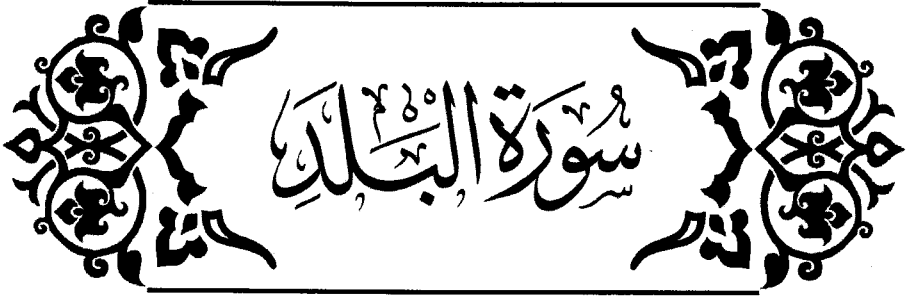 سُورَة البَلَدِ